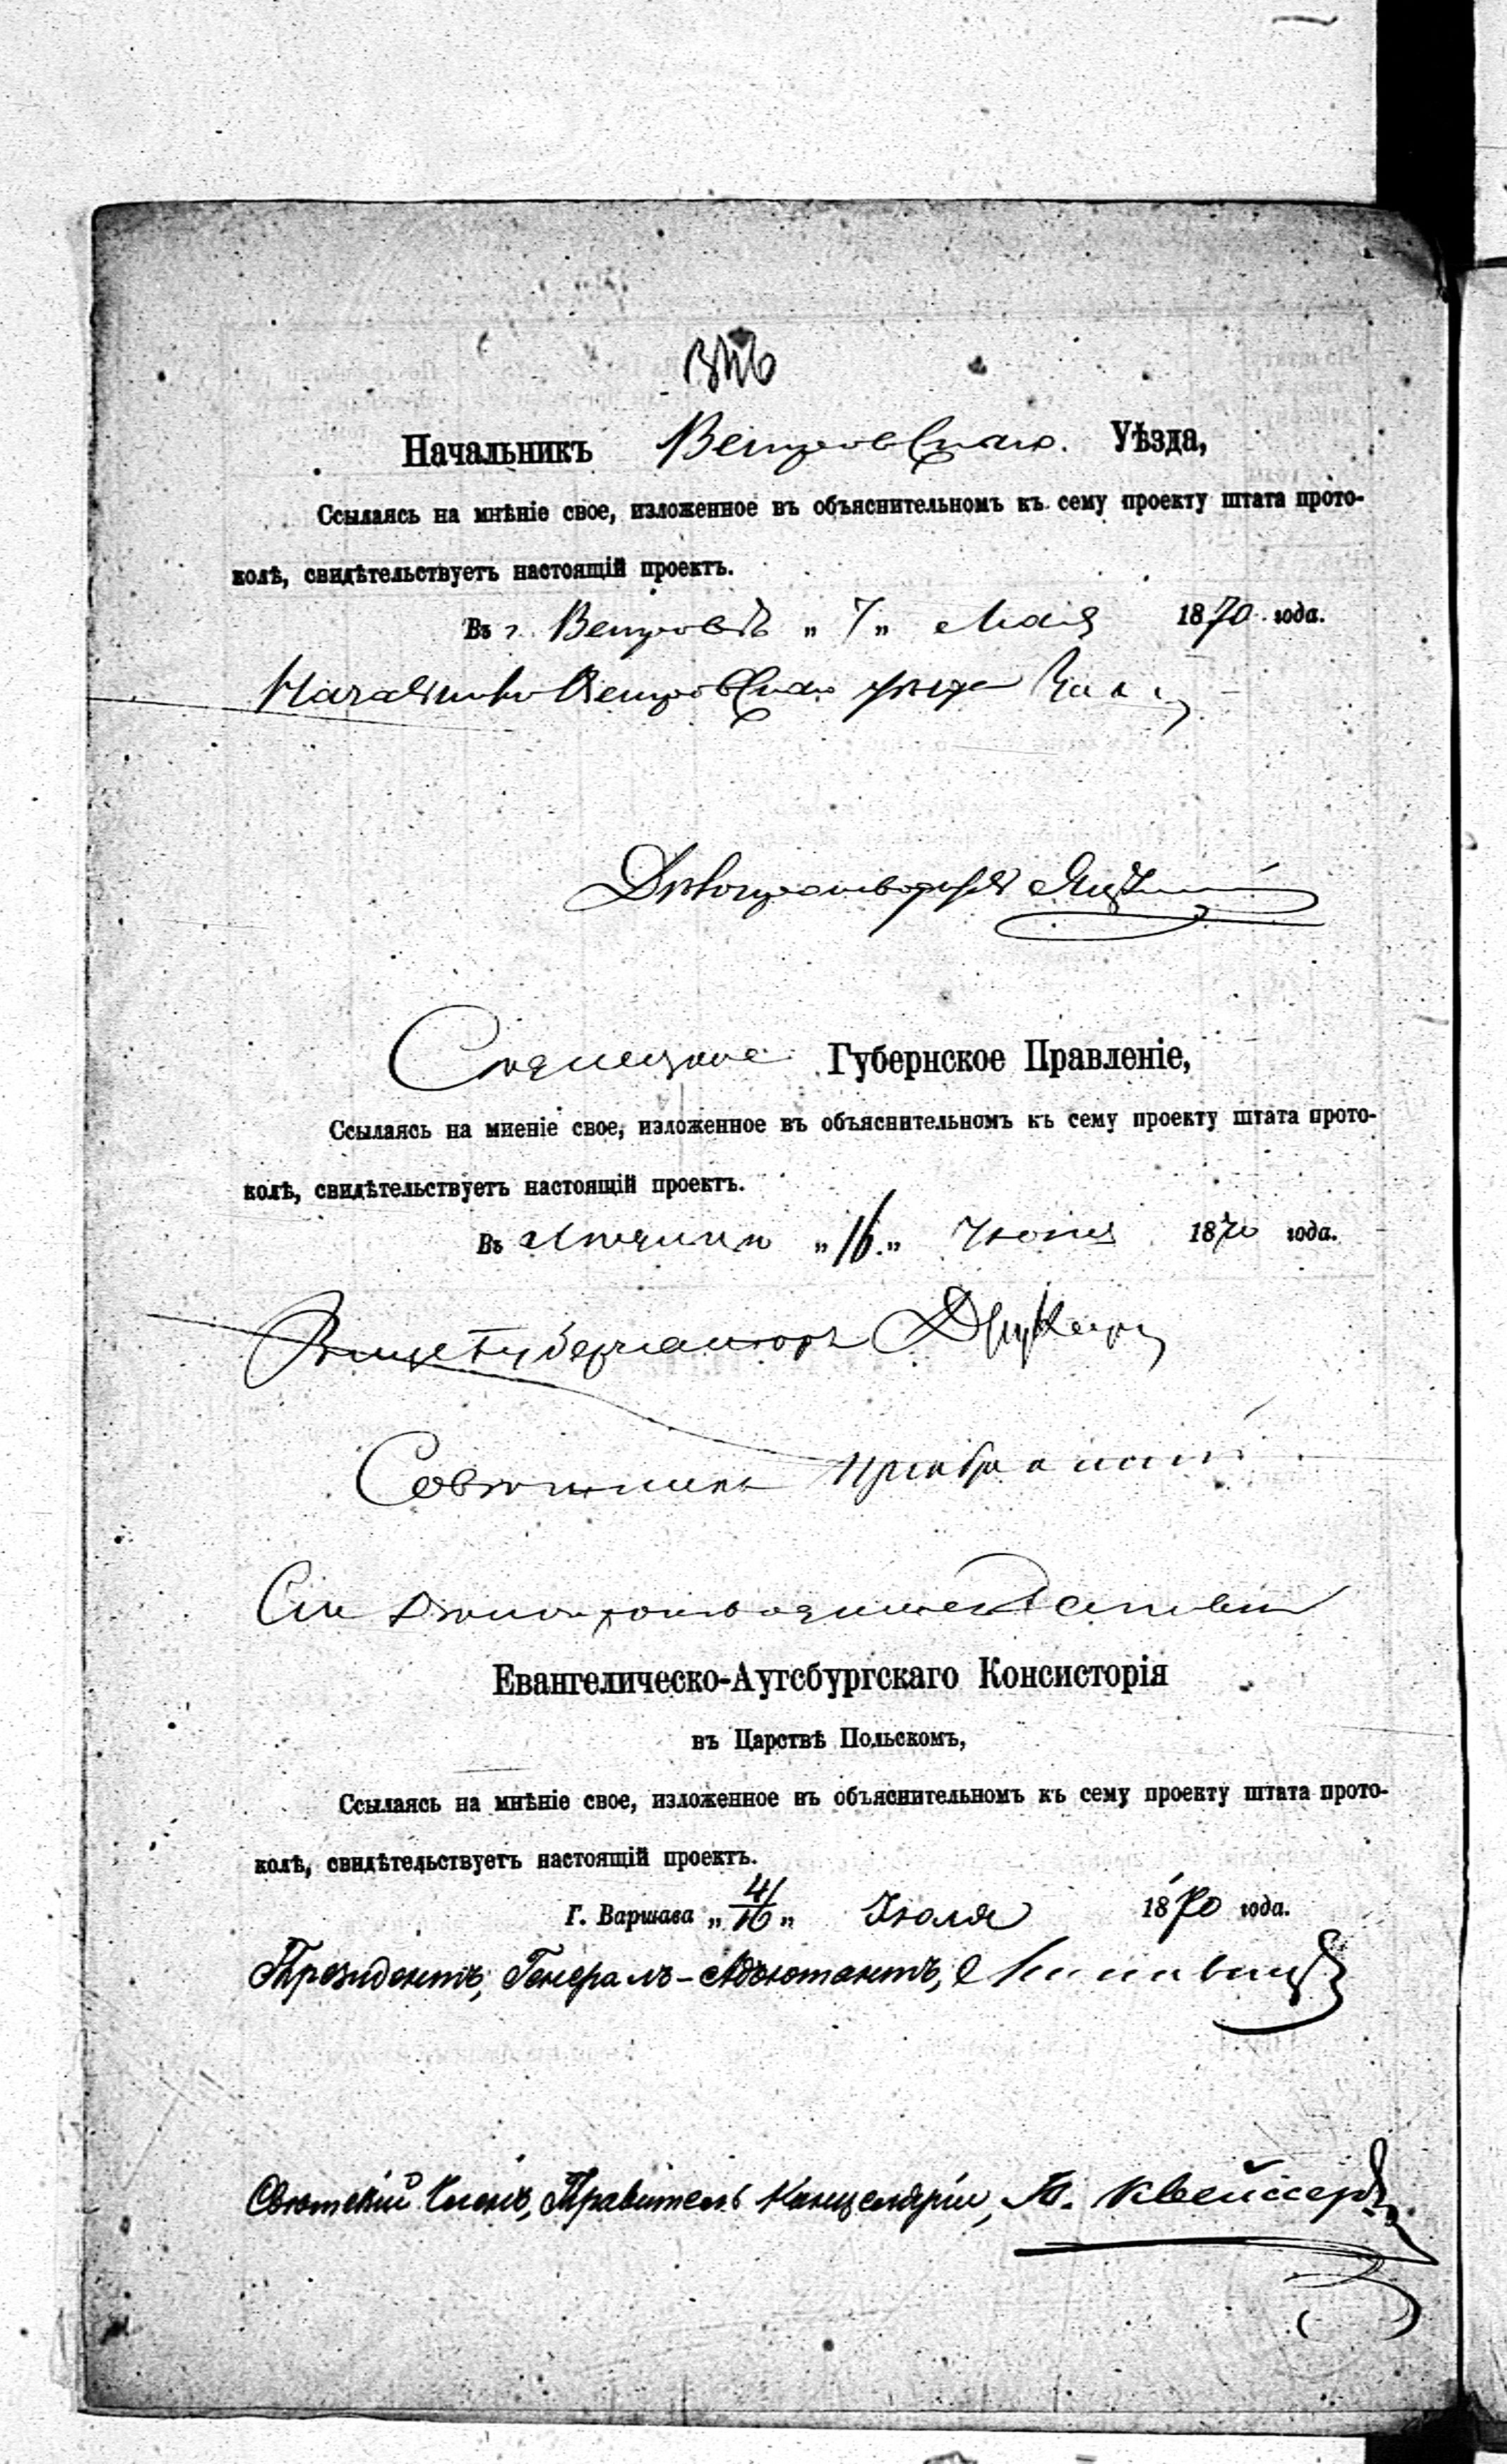 Начальникъ Венгровскаго Уѣзда,
Ссылаясь на мнѣніе свое, изложенное въ объяснительномъ къ сему проекту штата прото-
колѣ, свидѣтельствуетъ настоящій проектъ.
Въ г. Венгровѣ „ 7 „ Мая 1870 года.
Начальникъ Венгровскаго уѣзда
Дѣлопроизводитель
Сѣдлецкое Губернское Правленіе,
Ссылаясь на миеніе свое, изложенное въ объяснительномъ къ сему проекту штата прото-
колѣ, свидѣтельствуетъ настоящій проектъ.
Въ „ 16 „ Іюня 1870 года.
Вице Губернаторъ
Совѣтникъ
Дѣлопроизводитель
Евангелическо-Аугсбургскаго Консисторія
въ Царствѣ Польскомъ,
Ссылаясь на мнѣніе свое, изложенное въ объяснительномъ къ сему проекту штата прото-
колѣ, свидѣтельствуетъ настоящій проектъ.
Г. Варшава „ 4/16 „ Іюля 1870 года.
Президентъ, Генералъ-Адъютантъ,
Свѣтскій Членъ, Правитель Канцеляріи,